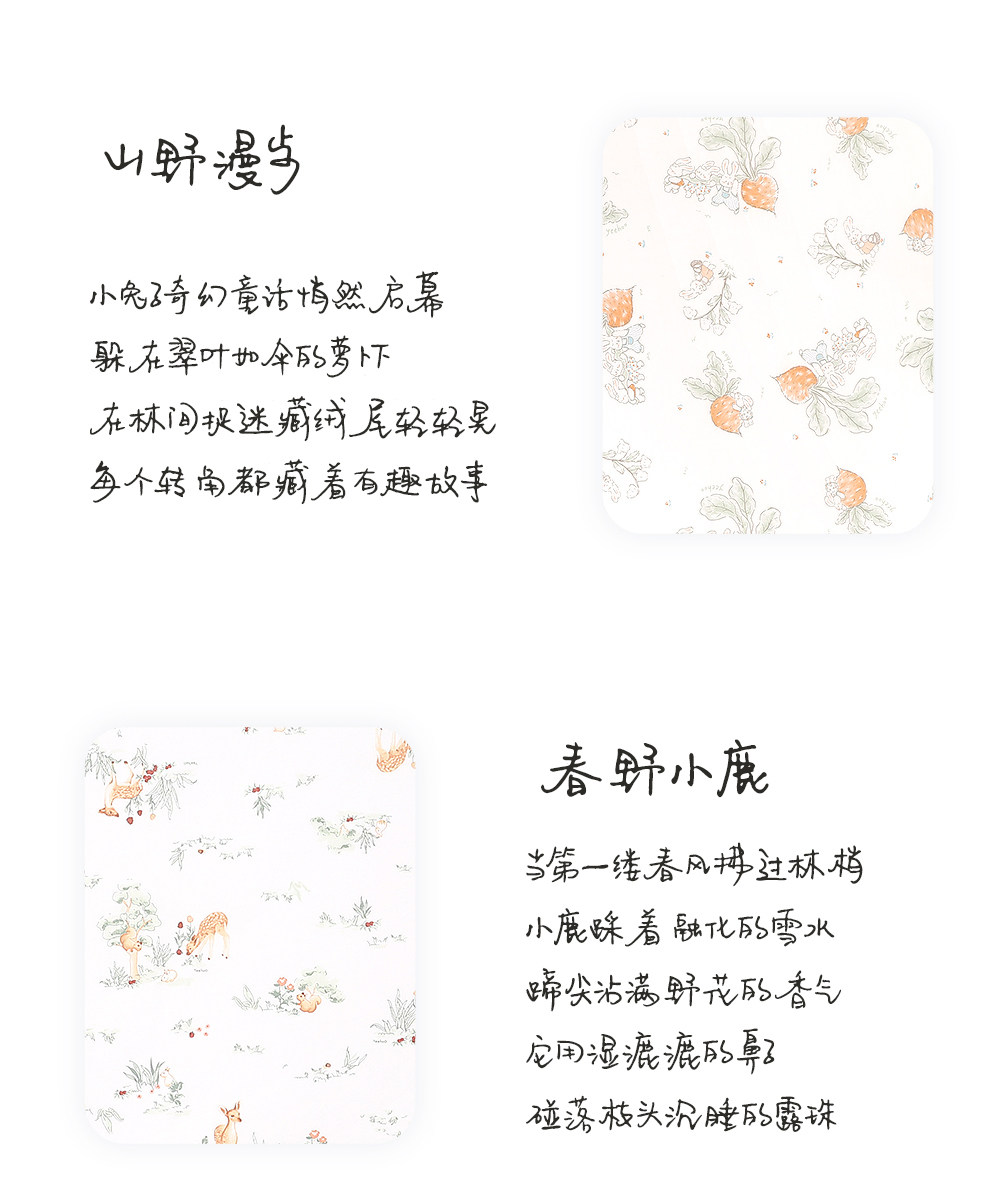 山野漫步
小兔子奇幻童话悄然启幕
躲在翠叶如伞的萝卜下
在林间捉迷藏绒尾轻轻晃
每个转角都藏着有趣故事
春野小鹿
当第一缕春风拂过林梢
小鹿踩着融化的雪水
蹄尖沾满野花的香气
它用湿漉漉的鼻子
碰落枝头沉睡的露珠